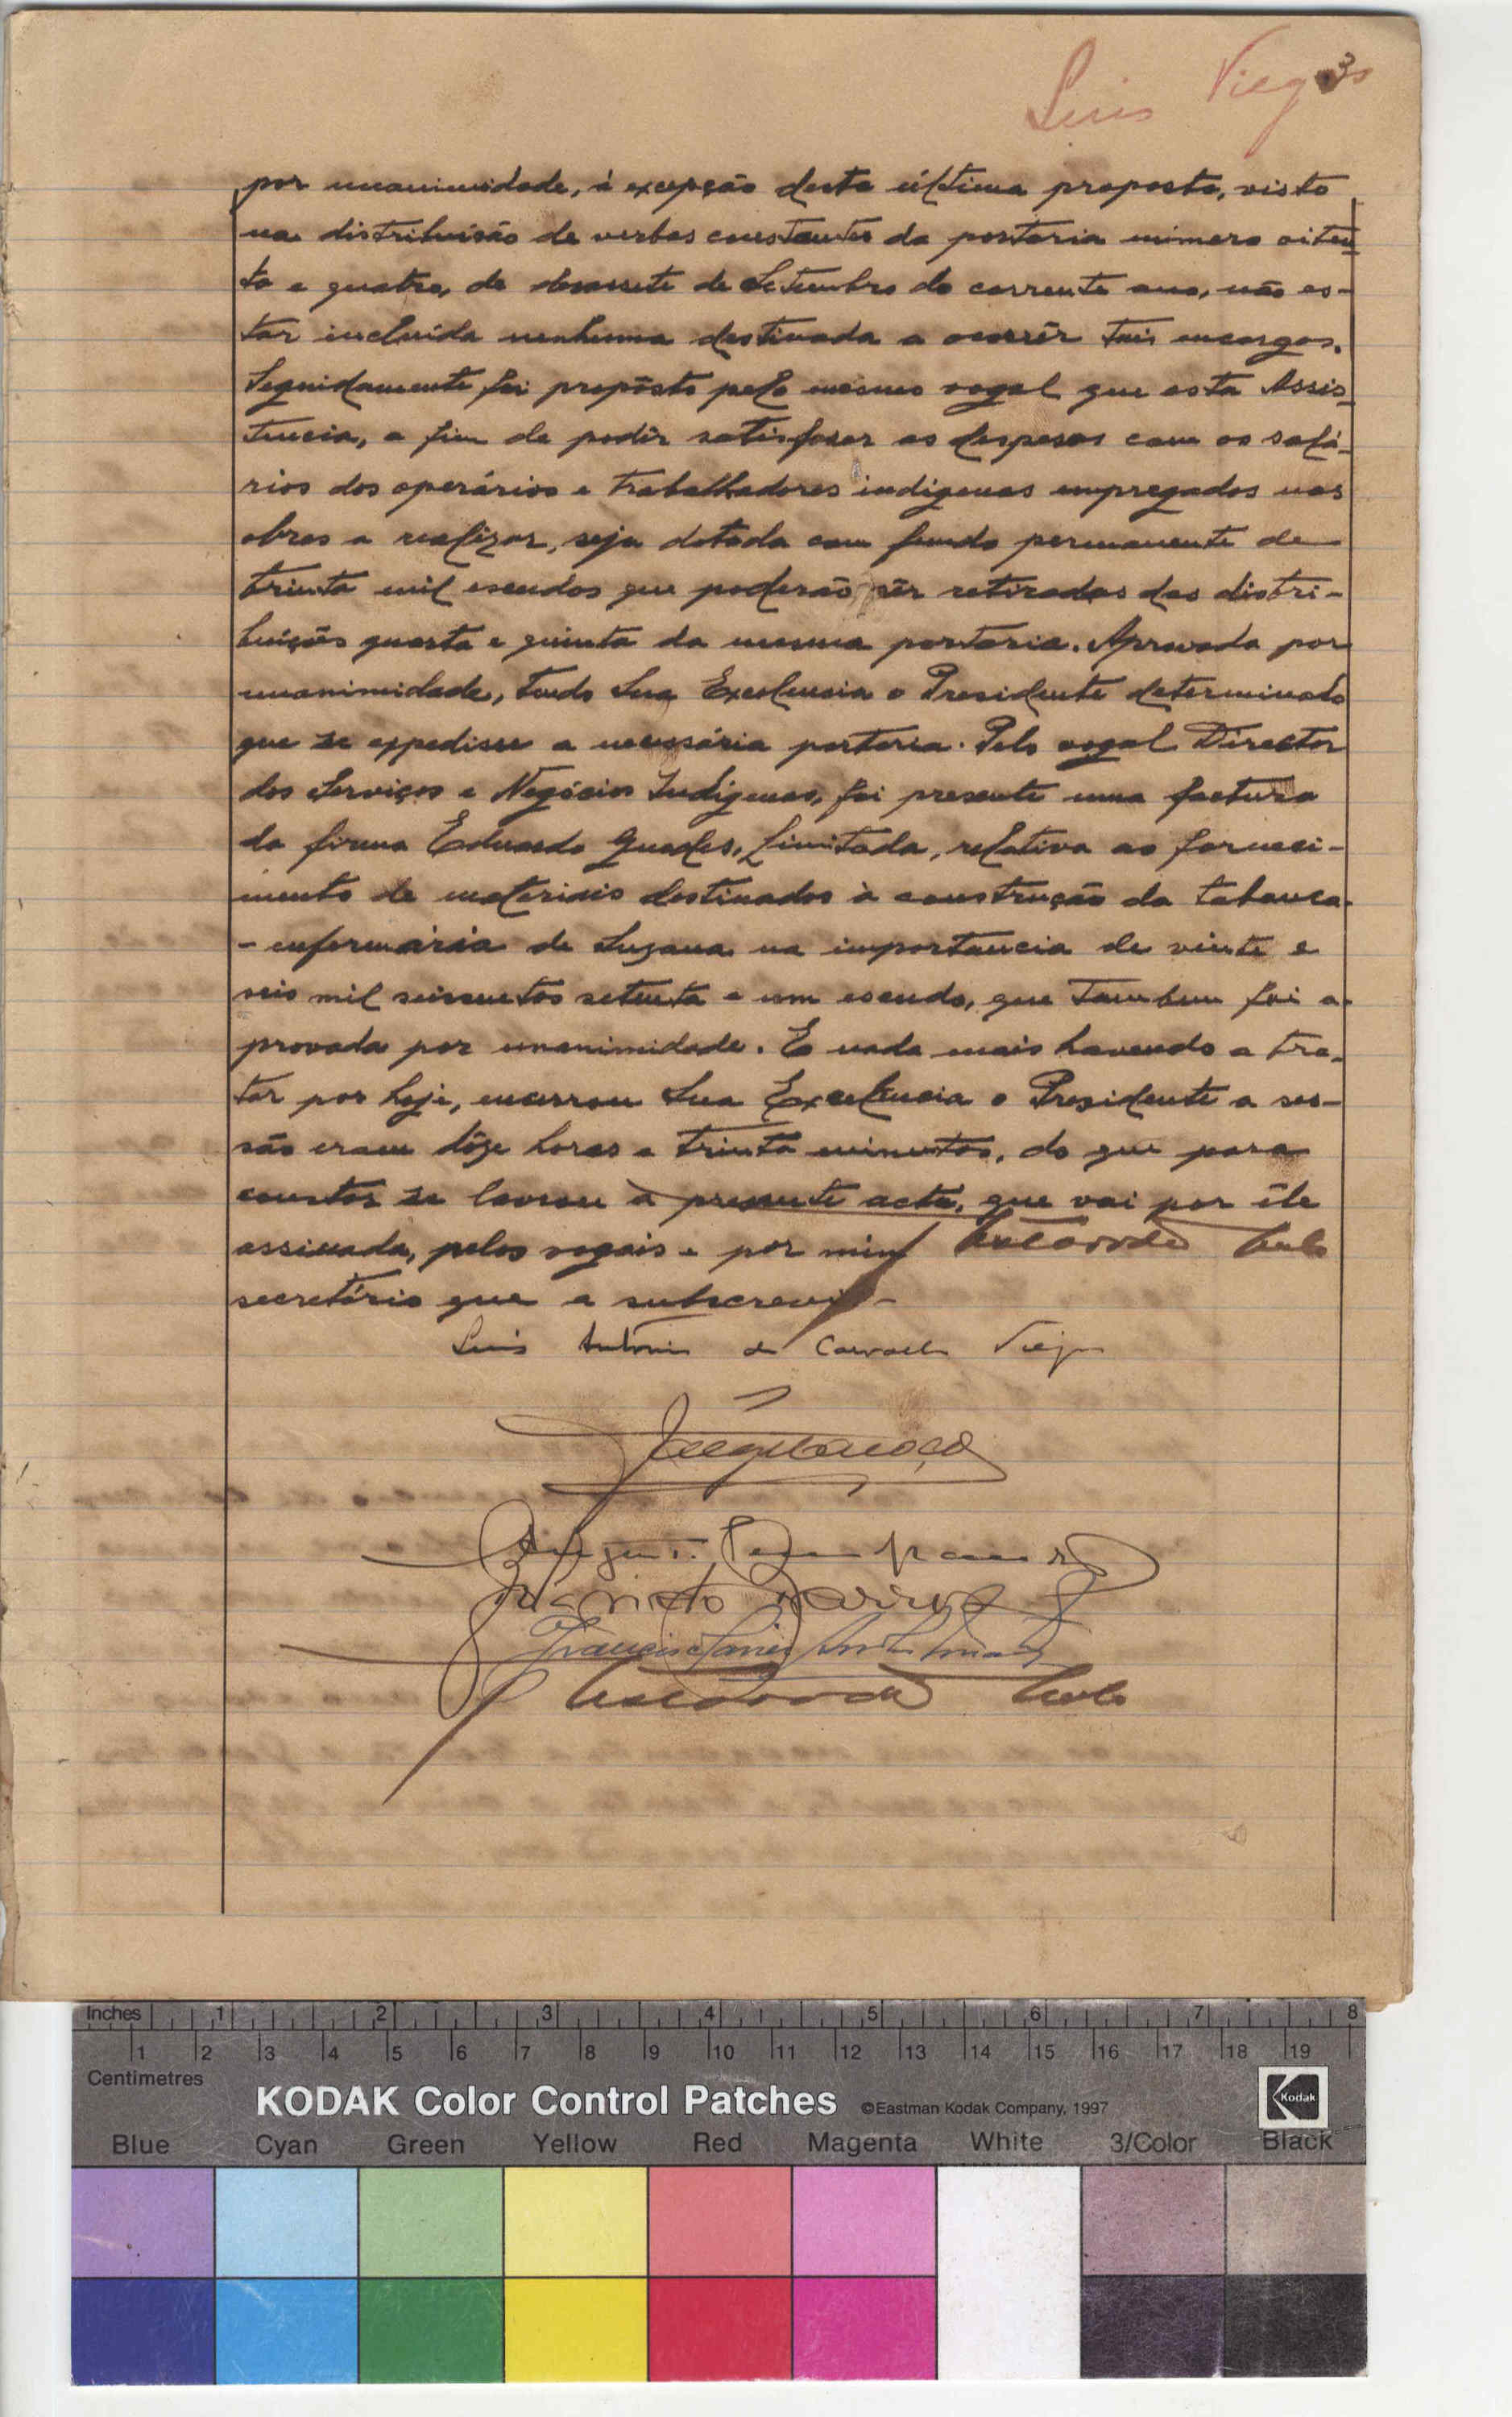 Luis Viegas
3
por unanimidade, à excepção desta última proposta, visto
na distribuïsão de verbas constantes da portaria número oiten-
ta e quatro, de desassete de Setembro do corrente ano, não es-
tar incluída nenhuma destinada a ocorrêr tais encargos.
Seguidamente foi propôsto pelo mesmo vogal que esta Assis-
tência, a fim de podêr satisfazer as despesas com os salá-
rios dos operários e trabalhadores indígenas empregados nas
obras a realizar, seja dotada com fundo permanente de
trinta mil escudos que poderão sêr retirados das distri-
buições quarta e quinta da mesma portaria. Aprovada por
unanimidade, tendo Sua Excelencia o Presidente determinado
que se expedisse a necessária portaria. Pelo vogal Director
dos Serviços e Negócios Indígenas, foi presente uma factura
da firma Eduardo Guedes, Limitada, relativa ao forneci-
mento de materiais destinados à construção da tabanca-
-enfermaria de Suzana na importancia de vinte e
seis mil seiscentos setenta e um escudo, que tambem foi a-
provada por unanimidade. E nada mais havendo a tra-
tar por hoje, encerrou Sua Excelencia o Presidente a ses-
são eram dôze horas e trinta minutos, do que para
constar se lavrou a presente acta, que vai por êle
assinada, pelos vogais e por mim
secretário que a subscrevi.-
Luis António de Carvalho Viegas
Inches 1 2 3 4 5 6 7 8
1 2 3 4 5 6 7 8 9 10 11 12 13 14 15 16 17 18 19
Centimetres
KODAK Color Control Patches ©Eastman Kodak Company, 1997 Kodak
Blue Cyan Green Yellow Red Magenta White 3/Color Black